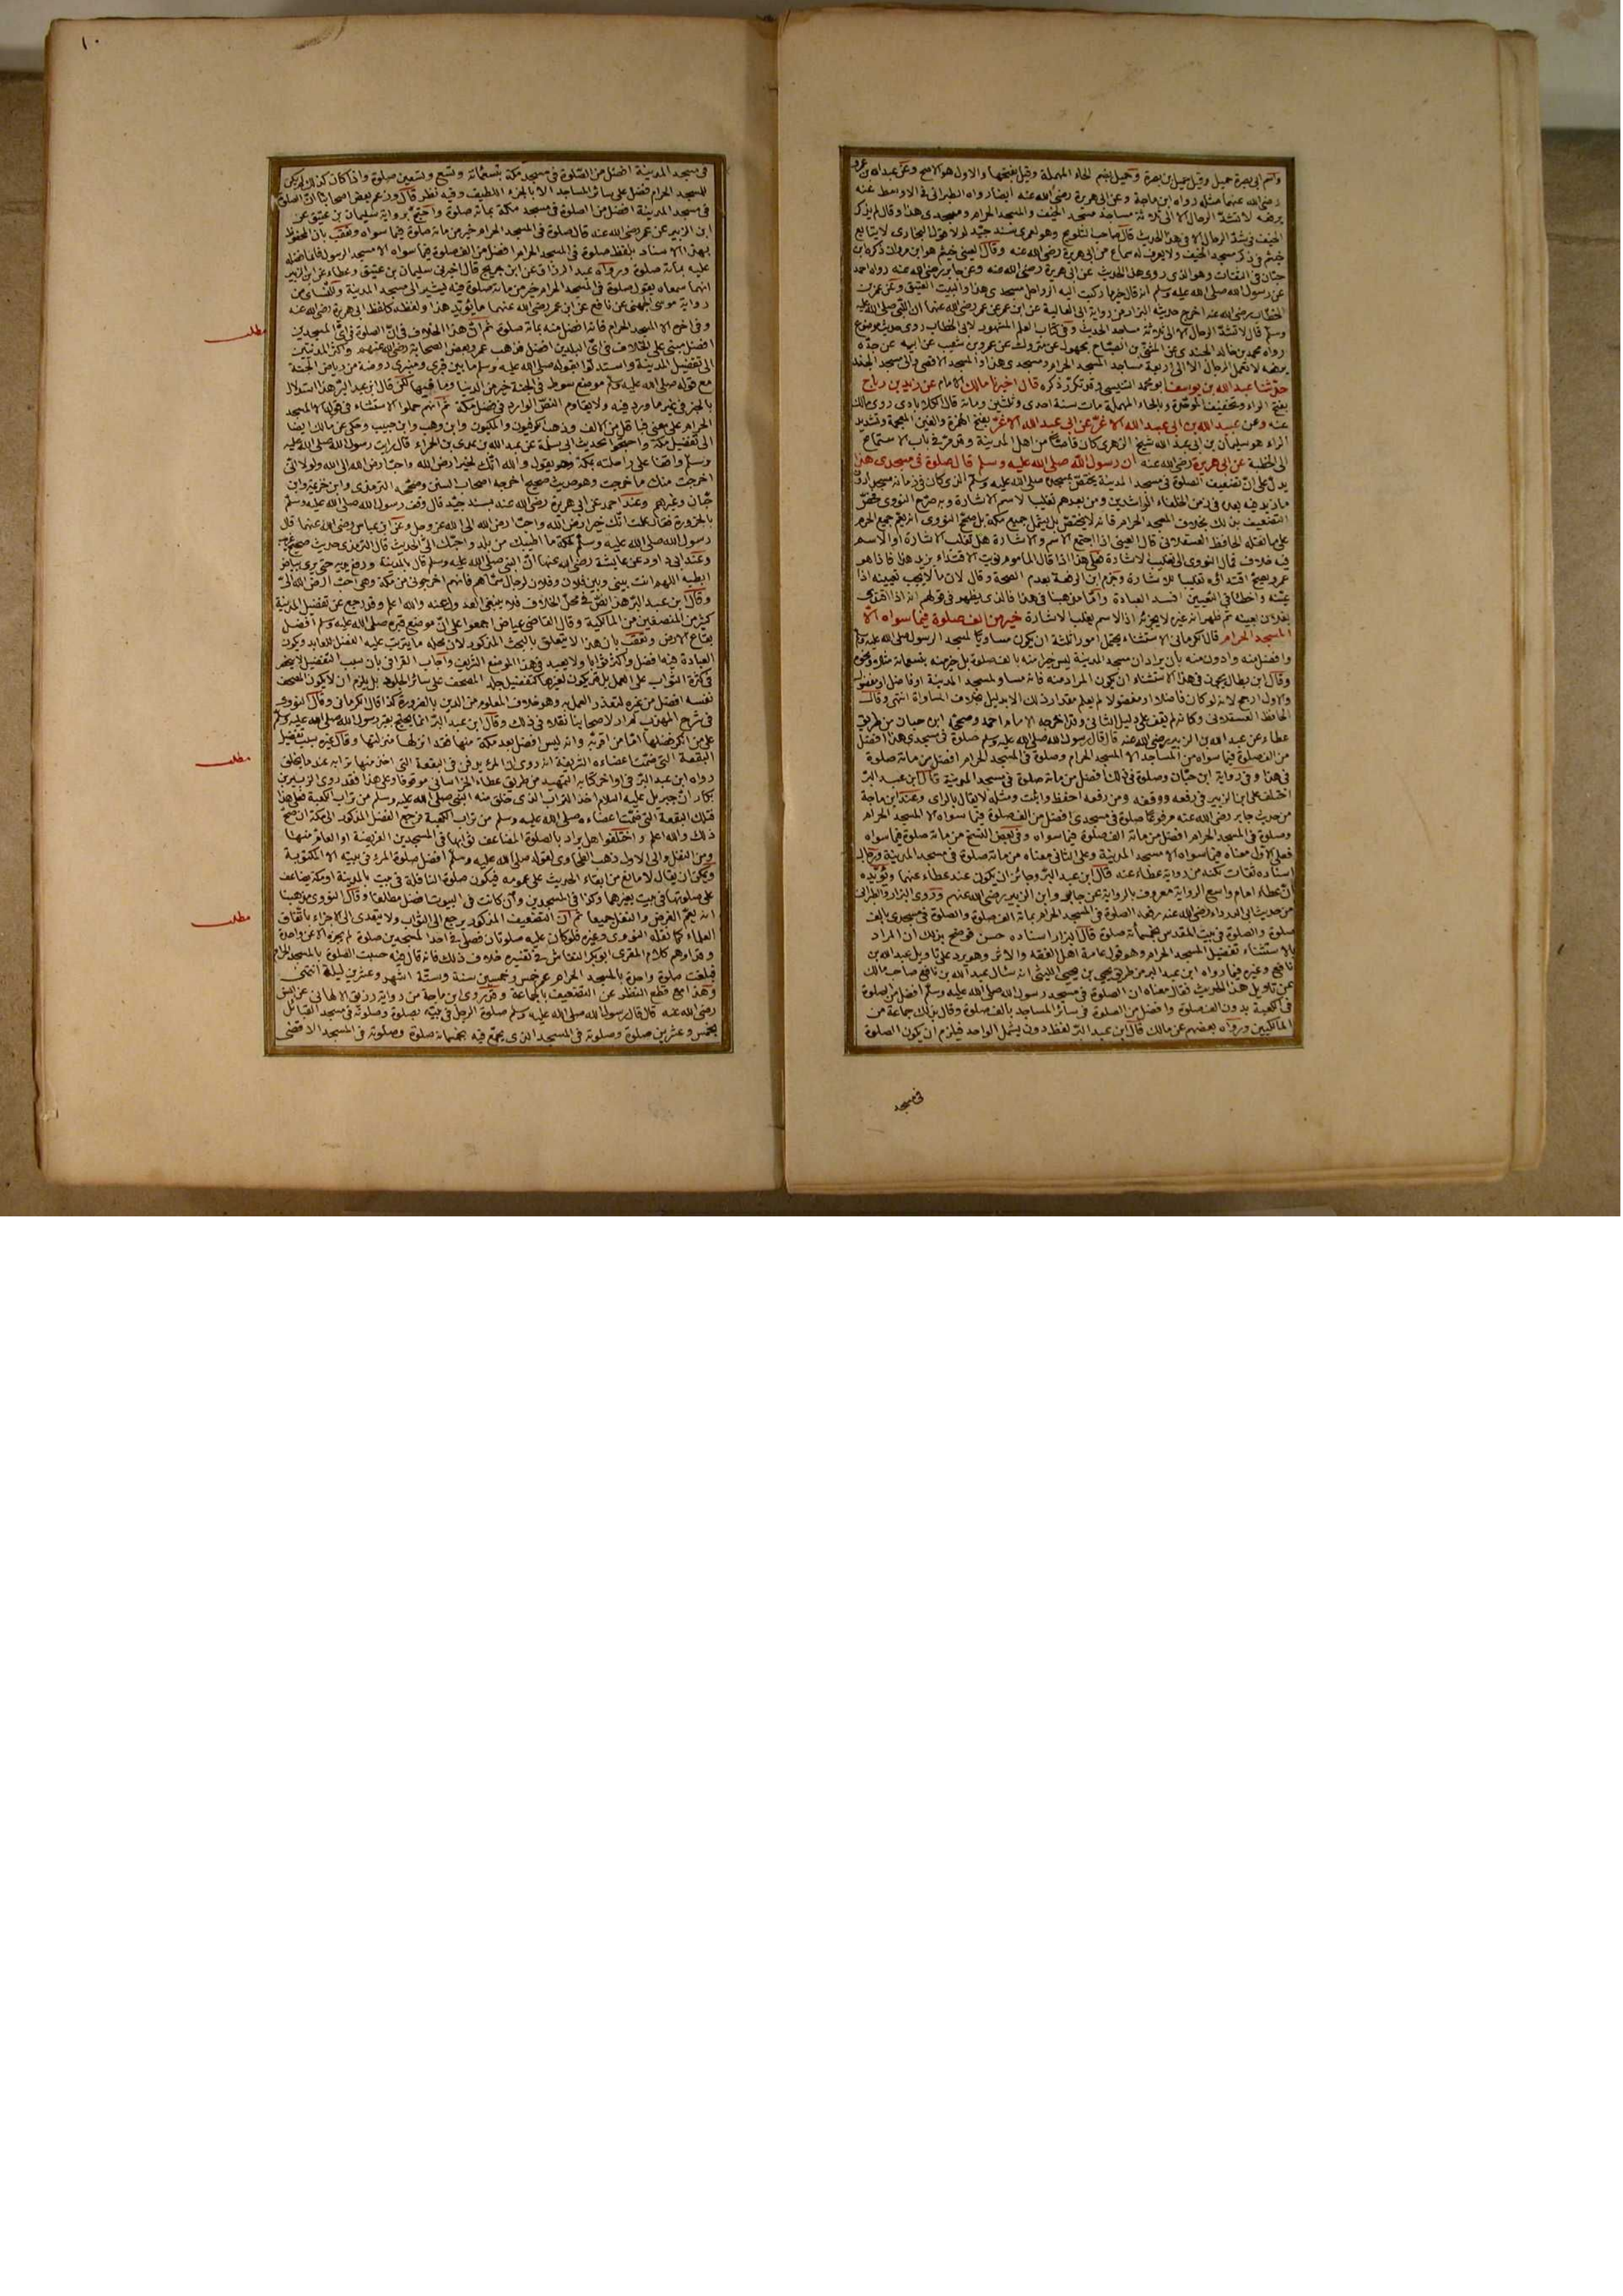 واسم ابي بصرة حميل وقيل جميل بن بصرة وحميل بضم الحاء المهملة وقيل بفتحها والاول هو الاصح وعن عبد الله بن عمرو
رضي الله عنهما مثله رواه ابن ماجة وعن ابي هريرة رضي الله عنه ايضا رواه الطبراني في الاوسط عنه
يرفعه لا تشد الرحال الا الى ثلاثة مساجد مسجد الخيف والمسجد الحرام ومسجدي هذا وقال لم يذكر
الخيف في شد الرحال الا في هذا الحديث قال صاحب التلويح وهو لعمري سند جيد لولا قول البخاري لا يتابع
خيثم في ذكر مسجد الخيف ولا يعرف له سماع من ابي هريرة رضي الله عنه وقال العيني خيثم هو ابن مروان ذكره ابن
حبان في الثقات وهو الذي روى هذا الحديث عن ابي هريرة رضي الله عنه وعن جابر رضي الله عنه رواه احمد
عن رسول الله صلى الله عليه وسلم انه قال خير ما ركبت اليه الرواحل مسجدي هذا والبيت العتيق وعن عمر بن
الخطاب رضي الله عنه اخرج حديثه البزار من رواية ابي العالية عن ابن عمر عن عمر رضي الله عنهما ان النبي صلى الله عليه
وسلم قال لا تشد الرحال الا الى ثلاثة مساجد الحديث وفي كتاب العلم المشهور لابي الخطاب روى حديث موضوع
رواه محمد بن خالد الجندي عن المثنى بن الصباح مجهول عن متروك عن عمرو بن شعيب عن ابيه عن جده
يرفعه لا تعمل الرحال الا الى اربعة مساجد المسجد الحرام ومسجدي هذا والمسجد الاقصى والى مسجد الجند
حدثنا عبد الله بن يوسف ابو محمد التنيسي وقد تكرر ذكره قال اخبرنا مالك الامام عن زيد بن رباح
بفتح الراء وتخفيف الموحدة وبالحاء المهملة مات سنة احدى وثلثين ومائة قال الكلاباذي روى مالك
عنه وعن عبيد الله بن ابي عبد الله الاغر عن ابي عبد الله الاغر بفتح الهمزة والغين المعجمة وتشديد
الراء هو سليمان بن ابي عبد الله شيخ الزهري كان قاصا من اهل المدينة وقد مر في باب الاستماع
الى الخطبة عن ابي هريرة رضي الله عنه ان رسول الله صلى الله عليه وسلم قال صلوة في مسجدي هذا
يدل على ان تضعيف الصلوة في مسجد المدينة يختص بمسجده صلى الله عليه وسلم الذي كان في زمانه مسجدا دون
ما زيد فيه بعده في زمن الخلفاء الراشدين ومن بعدهم تغليبا لاسم الاشارة وبه صرح النووي فخص
التضعيف بذلك بخلاف المسجد الحرام فانه لا يختص بل يشمل جميع مكة بل صحح النووي انه يعم جميع الحرم
على ما نقله الحافظ العسقلاني قال العيني اذا اجتمع الاسم والاشارة هل تغلب الاشارة او الاسم
فيه خلاف فمال النووي الى تغليب الاشارة فعلى هذا اذا قال الماموم نويت الاقتداء بزيد هذا فاذا هو
عمرو يصح اقتداؤه تغليبا للاشارة وجزم ابن الرفعة بعدم الصحة وقال لان ما لا يجب تعيينه اذا
عينه واخطأ في التعيين افسد العبادة واما مذهبنا في هذا فالذي يظهر في قولهم انه اذا اقتدى
بفلان بعينه ثم ظهر انه غيره لا يجزئه اذ الاسم يغلب الاشارة خير من الف صلوة فيما سواه الا
المسجد الحرام قال الكرماني الاستثناء يحتمل امورا ثلثة ان يكون مساويا لمسجد الرسول صلى الله عليه وسلم
وافضل منه وادون منه بأن يراد ان مسجد المدينة ليس خيرا منه بالف صلوة بل خير منه بتسعمائة مثلا ونحوه
وقال ابن بطال يجوز في هذا الاستثناء ان يكون المراد منه فانه مساو لمسجد المدينة او فاضلا او مفضولا
والاول ارجح لانه لو كان فاضلا او مفضولا لم يعلم مقدار ذلك الا بدليل بخلاف المساواة انتهى وقال
الحافظ العسقلاني وكانه لم يقف على دليل الثاني وقد اخرجه الامام احمد وصححه ابن حبان من طريق
عطاء عن عبد الله بن الزبير رضي الله عنه قال قال رسول الله صلى الله عليه وسلم صلوة في مسجدي هذا افضل
من الف صلوة فيما سواه من المساجد الا المسجد الحرام وصلوة في المسجد الحرام افضل من مائة صلوة
في هذا وفي رواية ابن حبان وصلوة في ذلك افضل من مائة صلوة في مسجد المدينة قال ابن عبد البر
اختلف على ابن الزبير في رفعه ووقفه ومن رفعه احفظ واثبت ومثله لا يقال بالراي وعند ابن ماجة
من حديث جابر رضي الله عنه مرفوعا صلوة في مسجدي افضل من الف صلوة فيما سواه الا المسجد الحرام
وصلوة في المسجد الحرام افضل من مائة الف صلوة فيما سواه وفي بعض النسخ من مائة صلوة فيما سواه
فعلى الاول معناه فيما سواه الا مسجد المدينة وعلى الثاني معناه من مائة صلوة في مسجد المدينة ورجال
اسناده ثقات لكنه من رواية عطاء عنه قال ابن عبد البر وجائز ان يكون عند عطاء عنهما ويؤيده
ان عطاء امام واسع الرواية معروف بالرواية عن جابر وابن الزبير رضي الله عنهم وروى البزار والطبراني
من حديث ابي الدرداء رضي الله عنه رفعه الصلوة في المسجد الحرام بمائة الف صلوة والصلوة في مسجدي بالف
صلوة والصلوة في بيت المقدس بخمسمائة صلوة قال البزار اسناده حسن فوضح بذلك ان المراد
بالاستثناء تفضيل المسجد الحرام وهو قول عامة اهل الفقه والاثر وهو يرد على تاويل عبد الله بن
نافع وغيره فيما رواه ابن عبد البر من طريق يحيى بن يحيى الليثي انه سأل عبد الله بن نافع صاحب مالك
عن تاويل هذا الحديث فقال معناه ان الصلوة في مسجد رسول الله صلى الله عليه وسلم افضل من الصلوة
في الكعبة بدون الف صلوة وافضل من الصلوة في سائر المساجد بالف صلوة وقال بذلك جماعة من
المالكيين ورواه بعضهم عن مالك قال ابن عبد البر لفظ دون يشمل الواحد فيلزم ان يكون الصلوة
في مسجد
١٠
في مسجد المدينة افضل من الصلوة في مسجد مكة بتسعمائة وتسع وتسعين صلوة واذا كان كذلك لم يكن
للمسجد الحرام فضل على سائر المساجد الا بالجزء اللطيف وفيه نظر قال وزعم بعض اصحابنا ان الصلوة
في مسجد المدينة افضل من الصلوة في مسجد مكة بمائة صلوة واحتج برواية سليمان بن عتيق عن
ابن الزبير عن عمر رضي الله عنه قال صلوة في المسجد الحرام خير من مائة صلوة فيما سواه وتعقب بان المحفوظ
بهذا الاسناد بلفظ صلوة في المسجد الحرام افضل من الف صلوة فيما سواه الا مسجد الرسول فانما فضله
عليه بمائة صلوة ورواه عبد الرزاق عن ابن جريج قال اخبرني سليمان بن عتيق وعطاء عن ابن الزبير
انهما سمعاه يقول صلوة في المسجد الحرام خير من مائة صلوة فيه ليشير الى مسجد المدينة وللنسائي من
رواية موسى الجهني عن نافع عن ابن عمر رضي الله عنهما ما يؤيد هذا ولفظه كلفظ ابي هريرة رضي الله عنه
وفي اخره الا المسجد الحرام فانه افضل منه بمائة صلوة ثم ان هذا الخلاف في ان الصلوة في اي المسجدين
مطلب
افضل مبني على الخلاف في اي البلدين افضل فذهب عمر وبعض الصحابة رضي الله عنهم واكثر المدنيين
الى تفضيل المدينة واستدلوا بقوله صلى الله عليه وسلم ما بين قبري ومنبري روضة من رياض الجنة
مع قوله صلى الله عليه وسلم موضع سوط في الجنة خير من الدنيا وما فيها لكن قال ابن عبد البر هذا استدلال
بالخبر في غير ما ورد فيه ولا يقاوم النص الوارد في فضل مكة ثم انهم حملوا الاستثناء في قوله الا المسجد
الحرام على معنى فيما قل من الالف وذهب الكوفيون والمكيون وابن وهب وابن حبيب وحكى عن مالك ايضا
الى تفضيل مكة واحتجوا بحديث ابي سلمة عن عبد الله بن عدي بن الحمراء قال رايت رسول الله صلى الله عليه
وسلم واقفا على راحلته بمكة وهو يقول والله انك لخير ارض الله واحب ارض الله الى الله ولولا اني
اخرجت منك ما خرجت وهو حديث صحيح اخرجه اصحاب السنن وصححه الترمذي وابن خزيمة وابن
حبان وغيرهم وعند احمد عن ابي هريرة رضي الله عنه بسند جيد قال وقف رسول الله صلى الله عليه وسلم
بالحزورة فقال علمت انك خير ارض الله واحب ارض الله الى الله عز وجل وعن ابن عباس رضي الله عنهما قال
رسول الله صلى الله عليه وسلم لمكة ما اطيبك من بلد واحبك الي الحديث قال الترمذي حديث صحيح غريب
وعند ابي داود عن عايشة رضي الله عنها ان النبي صلى الله عليه وسلم قال بالمدينة ورفع يديه حتى يرى بياض
ابطيه اللهم انت بيني وبين فلان وفلان لرجال سماهم فانهم اخرجوني من مكة وهي احب ارض الله الي
وقال ابن عبد البر هذا نص في محل الخلاف فلا ينبغي العدول عنه والله اعلم وقد رجع عن تفضيل المدينة
كثير من المنصفين من المالكية وقال القاضي عياض اجمعوا على ان موضع قبره صلى الله عليه وسلم افضل
بقاع الارض وتعقب بان هذا لا يتعلق بالبحث المذكور لان محله ما يترتب عليه الفضل للعابد ويكون
العبادة فيه افضل واكثر ثوابا ولا تعبد في هذا الموضع الشريف واجاب القرافي بان سبب التفضيل لا ينحصر
في كثرة الثواب على العمل بل قد يكون لغيرها كتفضيل جلد المصحف على سائر الجلود بل يلزم ان لا يكون المصحف
نفسه افضل من غيره لتعذر العمل به وهو خلاف المعلوم من الدين بالضرورة كذا قال الكرماني وقال النووي
في شرح المهذب لم ار لاصحابنا نقلا في ذلك وقال ابن عبد البر انما يحتج بقبر رسول الله صلى الله عليه وسلم
على من انكر فضلها اما من اقر به وانه ليس افضل بعد مكة منها فقد انزلها منزلتها وقال غيره سبب تفضيل
مطلب
البقعة التي ضمت اعضاءه الشريفة انه روي ان المرء يدفن في البقعة التي اخذ منها ترابه عند ما يخلق
رواه ابن عبد البر في اواخر كتابه التمهيد من طريق عطاء الخراساني موقوفا وعلى هذا فقد روى الزبير بن
بكار ان جبريل عليه السلام اخذ التراب الذي خلق منه النبي صلى الله عليه وسلم من تراب الكعبة فعلى هذا
فتلك البقعة التي ضمت اعضاءه صلى الله عليه وسلم من تراب الكعبة فرجع الفضل المذكور الى مكة ان صح
ذلك والله اعلم واختلفوا هل يراد بالصلوة المضاعف ثوابها في المسجدين الفريضة او العام منها
ومن النفل والى الاول ذهب الطحاوي لقوله صلى الله عليه وسلم افضل صلوة المرء في بيته الا المكتوبة
ويمكن ان يقال لا مانع من ابقاء الحديث على عمومه فيكون صلوة النافلة في بيت بالمدينة او مكة يضاعف
على صلوتها في بيت بغيرهما وكذا في المسجدين وان كانت في البيوت افضل مطلقا وقال النووي مذهبنا
مطلب
انه يعم الفرض والنفل جميعا ثم ان التضعيف المذكور يرجع الى الثواب ولا يتعدى الى الاجزاء باتفاق
العلماء كما نقله النووي وغيره فلو كان عليه صلوتان فصلى في احد المسجدين صلوة لم يجزه الا عن واحدة
وقد اوهم كلام المقرى ابو بكر النقاش في تفسيره خلاف ذلك فانه قال فيه حسبت الصلوة بالمسجد الحرام
فبلغت صلوة واحدة بالمسجد الحرام عمر خمس وخمسين سنة وستة اشهر وعشرين ليلة انتهى
وهذا مع قطع النظر عن التضعيف بالجماعة وقد روى ابن ماجة من رواية رزيق الالهاني عن انس
رضي الله عنه قال قال رسول الله صلى الله عليه وسلم صلوة الرجل في بيته بصلوة وصلوته في مسجد القبائل
بخمس وعشرين صلوة وصلوته في المسجد الذي يجمع فيه بخمسمائة صلوة وصلوته في المسجد الاقصى